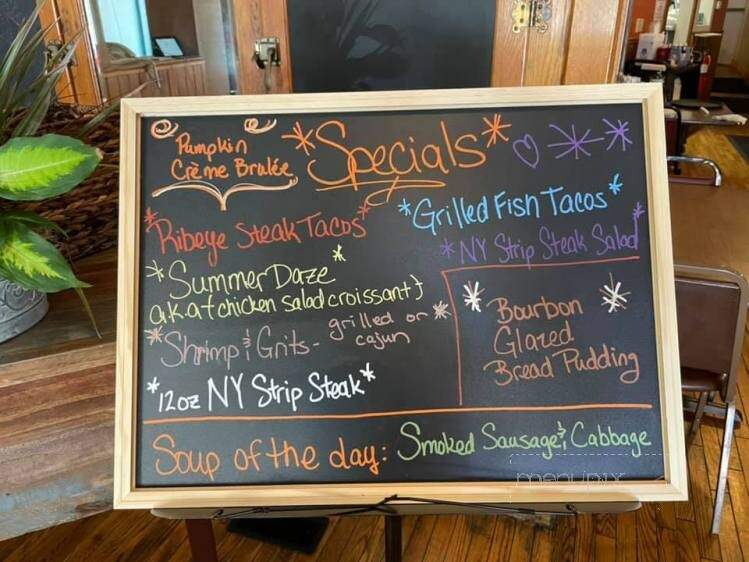 Pumpkin
Crème Brulée
*Specials*
*Ribeye Steak Tacos*
*Grilled Fish Tacos*
*NY Strip Steak Salad*
*Summer Daze*
a.k.a { chicken salad croissant }
*Shrimp & Grits - grilled or*
cajun
*12oz NY Strip Steak*
* Bourbon *
Glazed
Bread Pudding
Soup of the day: Smoked Sausage & Cabbage
menupix